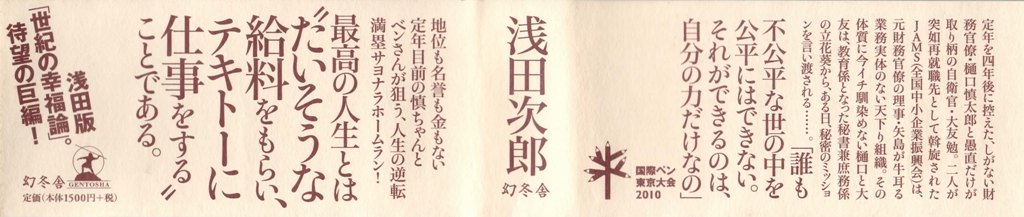 定年を四年後に控えた、しがない財
務官僚・樋口慎太郎と愚直だけが
取り柄の自衛官・大友勉。二人が
突如再就職先として斡旋された
JAMS〈全国中小企業振興会〉は、
元財務官僚の理事・矢島が牛耳る
業務実体のない天下り組織。その
体質に今イチ馴染めない樋口と大
友は、教育係となった秘書兼庶務係
の立花葵から、ある日、秘密のミッショ
ンを言い渡される……。
「誰も
不公平な世の中を
公平にはできない。
それができるのは、
自分の力だけなの」
国際ペン
東京大会
2010
浅田次郎
幻冬舎
地位も名誉も金もない
定年目前の慎ちゃんと
ベンさんが狙う、人生の逆転
満塁サヨナラホームラン！
最高の人生とは
〝たいそうな
給料をもらい、
テキトーに
仕事をする〟
ことである。
浅田版
「世紀の幸福論」。
待望の巨編！
GENTOSHA
幻冬舎
定価（本体1500円＋税）